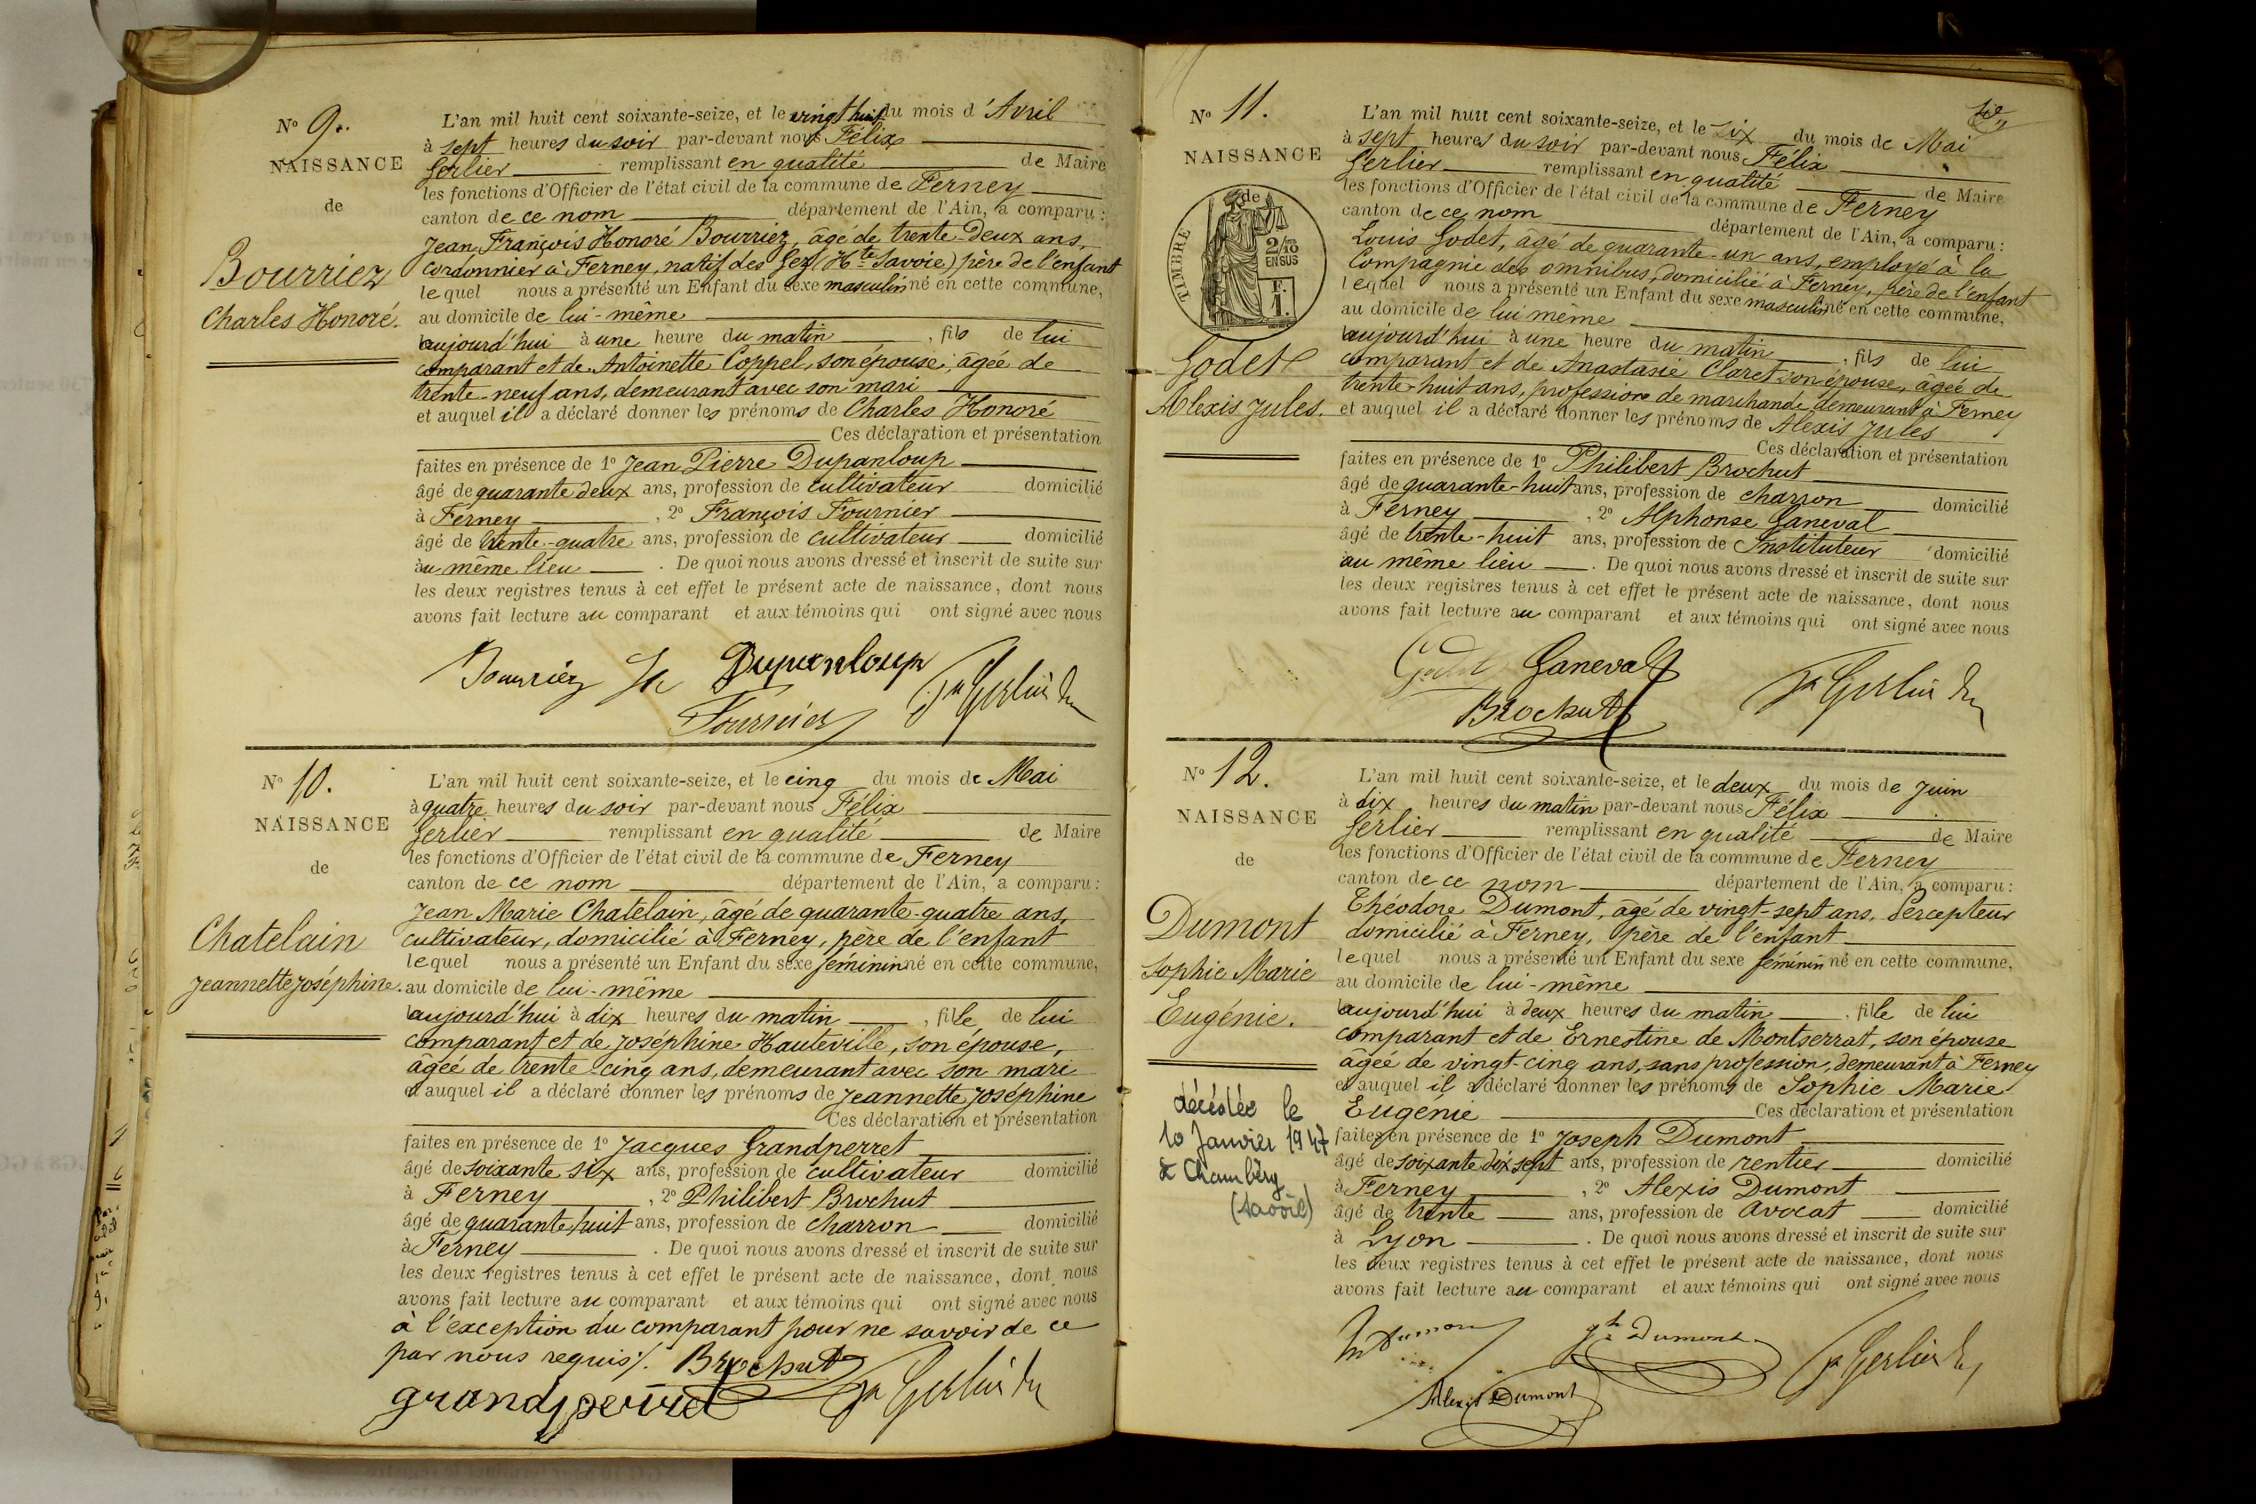 N° 9.
NAISSANCE
de
Bourriez
Charles Honoré.
L'an mil huit cent soixante-seize, et le vingt huit du mois d'Avril
à sept heures du soir par-devant nous Félix
Gerlier remplissant en qualité de Maire
les fonctions d'Officier de l'état civil de la commune de Ferney
canton de ce nom département de l'Ain, a comparu :
Jean François Honoré Bourriez, âgé de trente-deux ans,
cordonnier à Ferney, natif des Gez (Hte Savoie) père de l'enfant
lequel nous a présenté un Enfant du sexe masculin né en cette commune,
au domicile de lui-même
aujourd'hui à une heure du matin, fils de lui
comparant et de Antoinette Coppel, son épouse, âgée de
trente-neuf ans, demeurant avec son mari
et auquel il a déclaré donner les prénoms de Charles Honoré
Ces déclaration et présentation
faites en présence de 1° Jean Pierre Dupanloup
âgé de quarante deux ans, profession de cultivateur domicilié
à Ferney, 2° François Fournier
âgé de trente-quatre ans, profession de cultivateur domicilié
au même lieu. De quoi nous avons dressé et inscrit de suite sur
les deux registres tenus à cet effet le présent acte de naissance, dont nous
avons fait lecture au comparant et aux témoins qui ont signé avec nous
Bourriez Dupanloup
Fournier
N° 10.
NAISSANCE
de
Chatelain
Jeannette Joséphine.
L'an mil huit cent soixante-seize, et le cinq du mois de Mai
à quatre heures du soir par-devant nous Félix
Gerlier remplissant en qualité de Maire
les fonctions d'Officier de l'état civil de la commune de Ferney
canton de ce nom département de l'Ain, a comparu :
Jean Marie Chatelain, âgé de quarante-quatre ans,
cultivateur, domicilié à Ferney, père de l'enfant
lequel nous a présenté un Enfant du sexe féminin né en cette commune,
au domicile de lui-même
aujourd'hui à dix heures du matin, fille de lui
comparant et de Joséphine Hauteville, son épouse,
âgée de trente-cinq ans, demeurant avec son mari
et auquel il a déclaré donner les prénoms de Jeannette Joséphine
Ces déclaration et présentation
faites en présence de 1° Jacques Grandperret
âgé de soixante six ans, profession de cultivateur domicilié
à Ferney, 2° Philibert Brochut
âgé de quarante huit ans, profession de charron domicilié
à Ferney. De quoi nous avons dressé et inscrit de suite sur
les deux registres tenus à cet effet le présent acte de naissance, dont nous
avons fait lecture au comparant et aux témoins qui ont signé avec nous
à l'exception du comparant pour ne savoir de ce
par nous requis/. Brochut
grandperret
N° 11.
NAISSANCE
de
TIMBRE
2/10 EN SUS
F. 1.
Godet
Alexis Jules.
L'an mil huit cent soixante-seize, et le six du mois de Mai
à sept heures du soir par-devant nous Félix
Gerlier remplissant en qualité de Maire
les fonctions d'Officier de l'état civil de la commune de Ferney
canton de ce nom département de l'Ain, a comparu :
Louis Godet, âgé de quarante-un ans, employé à la
Compagnie des omnibus, domicilié à Ferney, père de l'enfant
lequel nous a présenté un Enfant du sexe masculin né en cette commune,
au domicile de lui même
aujourd'hui à une heure du matin, fils de lui
comparant et de Anastasie Claret son épouse, âgée de
trente-huit ans, profession de marchande demeurant à Ferney
et auquel il a déclaré donner les prénoms de Alexis Jules
Ces déclaration et présentation
faites en présence de 1° Philibert Brochut
âgé de quarante-huit ans, profession de charron domicilié
à Ferney, 2° Alphonse Ganeval
âgé de trente-huit ans, profession de Instituteur domicilié
au même lieu. De quoi nous avons dressé et inscrit de suite sur
les deux registres tenus à cet effet le présent acte de naissance, dont nous
avons fait lecture au comparant et aux témoins qui ont signé avec nous
Godet Ganeval
Brochut
N° 12.
NAISSANCE
de
Dumont
Sophie Marie
Eugénie.
décédée le
10 Janvier 1947
à Chambéry
(Savoie)
L'an mil huit cent soixante-seize, et le deux du mois de Juin
à dix heures du matin par-devant nous Félix
Gerlier remplissant en qualité de Maire
les fonctions d'Officier de l'état civil de la commune de Ferney
canton de ce nom département de l'Ain, a comparu :
Théodore Dumont, âgé de vingt-sept ans, Percepteur
domicilié à Ferney, père de l'enfant
lequel nous a présenté un Enfant du sexe féminin né en cette commune,
au domicile de lui-même
aujourd'hui à deux heures du matin, fille de lui
comparant et de Ernestine de Montserrat, son épouse
âgée de vingt-cinq ans, sans profession, demeurant à Ferney
et auquel il a déclaré donner les prénoms de Sophie Marie
Eugénie Ces déclaration et présentation
faites en présence de 1° Joseph Dumont
âgé de soixante dix sept ans, profession de rentier domicilié
à Ferney, 2° Alexis Dumont
âgé de trente ans, profession de avocat domicilié
à Lyon. De quoi nous avons dressé et inscrit de suite sur
les deux registres tenus à cet effet le présent acte de naissance, dont nous
avons fait lecture au comparant et aux témoins qui ont signé avec nous
Dumont Jh Dumont
Alexis Dumont